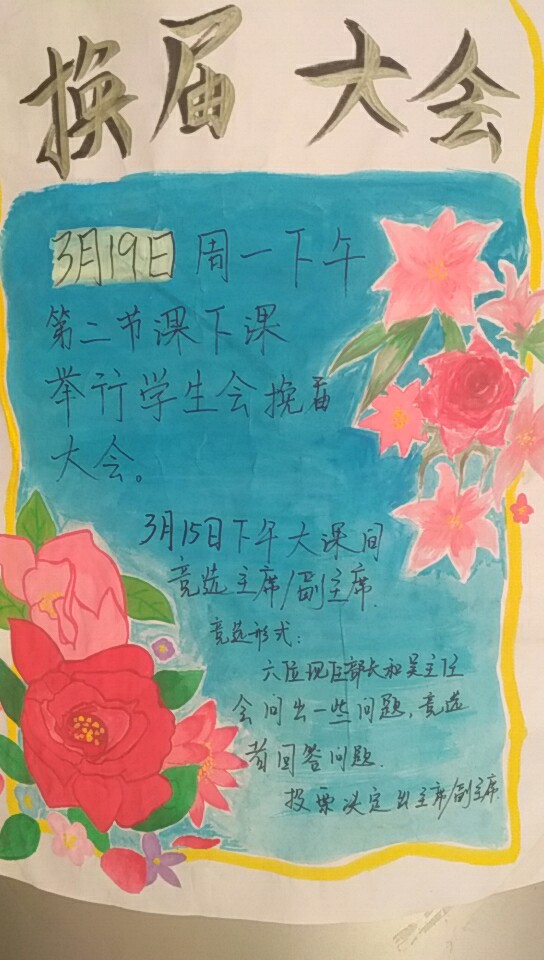 换届 大会
3月19日 周一下午
第二节课下课
举行学生会换届
大会。
3月15日下午大课间
竞选主席/副主席.
竞选形式:
六位现任部长和吴主任
会问出一些问题,竞选
者回答问题.
投票决定出主席/副主席.